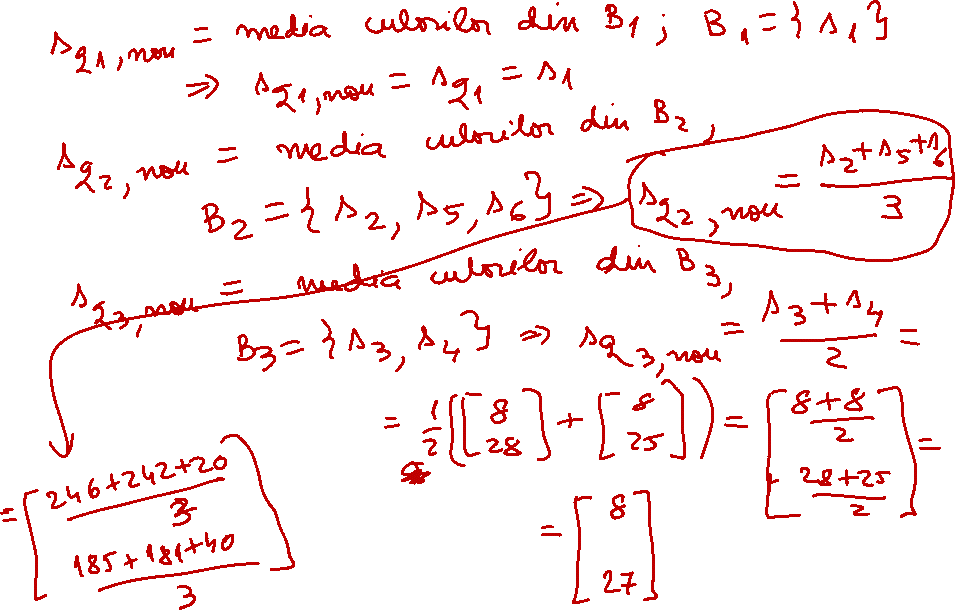 s_{q1, nou} = media culorilor din B_1 ; B_1 = { s_1 }
⇒ s_{q1, nou} = s_{q1} = s_1
s_{q2, nou} = media culorilor din B_2,
B_2 = { s_2, s_5, s_6 } ⇒ s_{q2, nou} = \frac{s_2 + s_5 + s_6}{3}
s_{q3, nou} = media culorilor din B_3,
B_3 = { s_3, s_4 } ⇒ s_{q3, nou} = \frac{s_3 + s_4}{2} =
= \frac{1}{2} ( [ 8 28 ] + [ 8 25 ] ) = [ \frac{8+8}{2} \frac{28+25}{2} ] =
= [ \frac{246+242+20}{3} \frac{185+181+40}{3} ]
= [ 8 27 ]